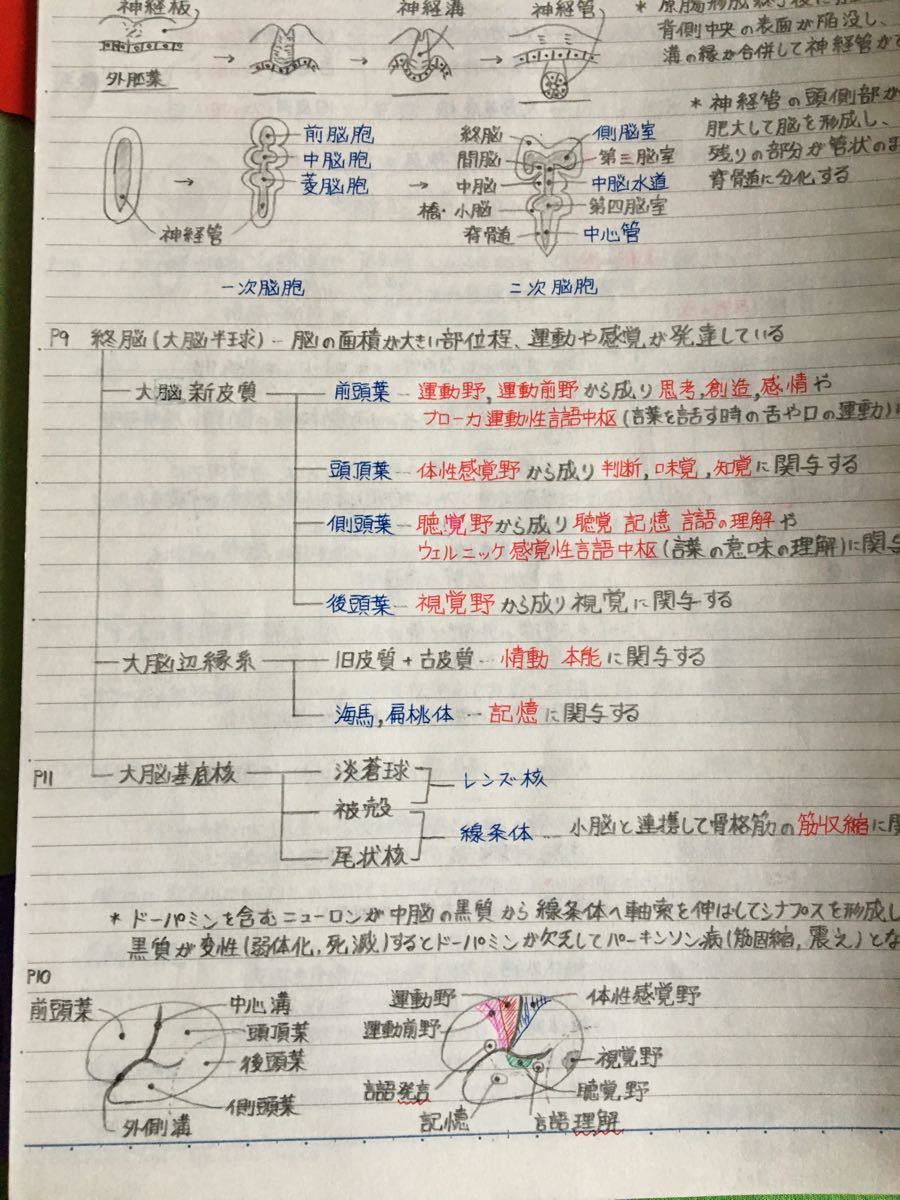 神経板
神経溝
神経管
外胚葉
背側中央の表面が陥没し、
溝の縁が合併して神経管がで
* 神経管の頭側部が
肥大して脳を形成し、
残りの部分が管状のま
脊骨道に分化する
前脳胞
中脳胞
菱脳胞
神経管
終脳
間脳
中脳
橋・小脳
脊骨道
側脳室
第三脳室
中脳水道
第四脳室
中心管
一次脳胞
二次脳胞
P9 終脳(大脳半球)-- 脳の面積が大きい部位程、運動や感覚が発達している
大脳新皮質
前頭葉 - 運動野, 運動前野から成り思考,創造,感情や
ブローカ運動性言語中枢(言葉を話す時の舌や口の運動)
頭頂葉 - 体性感覚野から成り判断,味覚,知覚に関与する
側頭葉 - 聴覚野から成り聴覚 記憶 言語の理解や
ウェルニッケ感覚性言語中枢(言葉の意味の理解)に関与
後頭葉 - 視覚野から成り視覚に関与する
大脳辺縁系
旧皮質+古皮質 -- 情動 本能に関与する
海馬,扁桃体 -- 記憶に関与する
P11
大脳基底核
淡蒼球
被殻
尾状核
レンズ核
線条体 -- 小脳と連携して骨格筋の筋収縮に関
* ドーパミンを含むニューロンが中脳の黒質から線条体へ軸索を伸ばしてシナプスを形成し
黒質が変性(弱体化,死滅)するとドーパミンが欠乏してパーキンソン病(筋固縮,震え)とな
P10
前頭葉
中心溝
頭頂葉
後頭葉
側頭葉
外側溝
運動野
体性感覚野
運動前野
視覚野
聴覚野
言語発言
記憶
言語理解